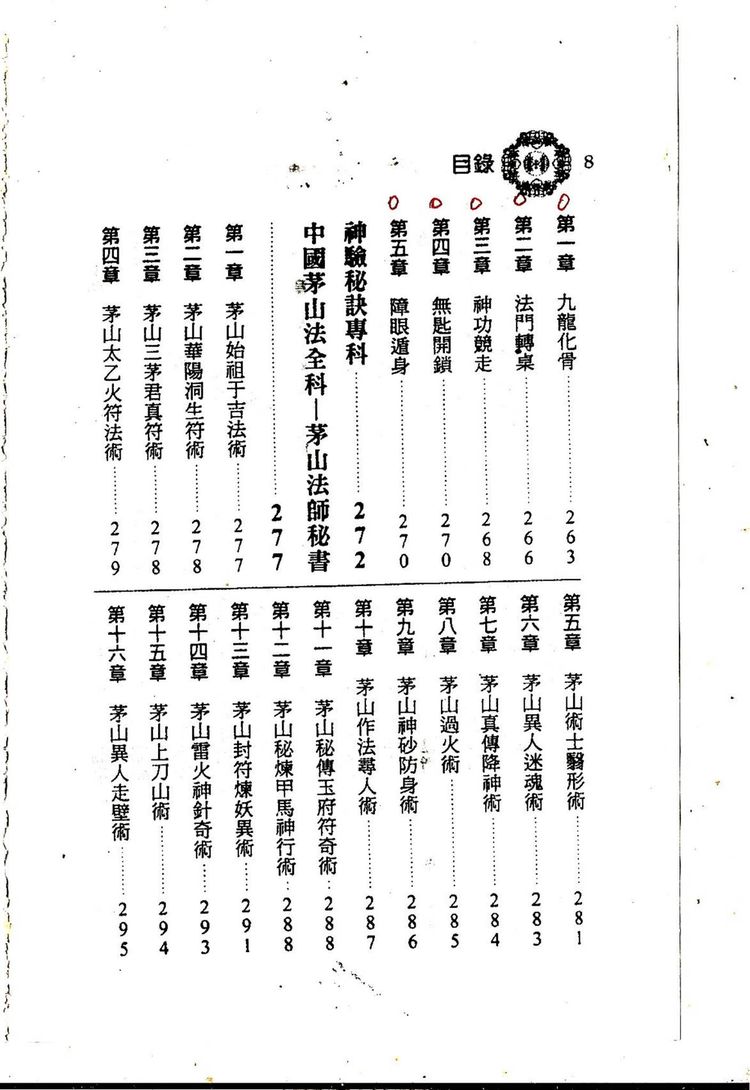 目錄
8
第一章 九龍化骨………263
第二章 法門轉桌………266
第三章 神功競走………268
第四章 無匙開鎖………270
第五章 障眼遁身………270
神驗秘訣專科………272
中國茅山法全科—茅山法師秘書
………277
第一章 茅山始祖于吉法術………277
第二章 茅山華陽洞生符術………278
第三章 茅山三茅君真符術………278
第四章 茅山太乙火符法術………279
第五章 茅山術士翳形術………281
第六章 茅山異人迷魂術………283
第七章 茅山真傳降神術………284
第八章 茅山過火術………285
第九章 茅山神砂防身術………286
第十章 茅山作法尋人術………287
第十一章 茅山秘傳玉府符奇術…288
第十二章 茅山秘煉甲馬神行術…288
第十三章 茅山封符煉妖異術……291
第十四章 茅山雷火神針奇術……293
第十五章 茅山上刀山術………294
第十六章 茅山異人走壁術………295